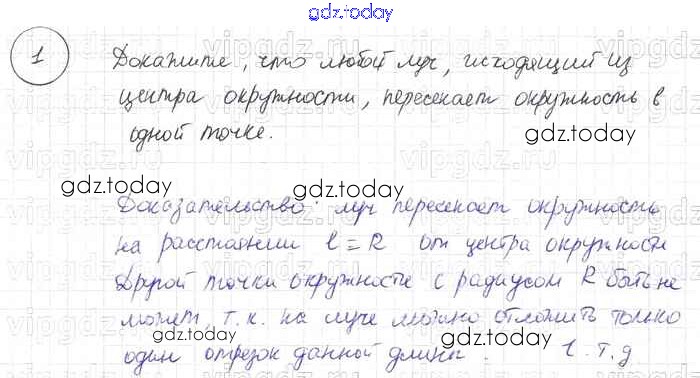 gdz.today
1 Докажите, что любой луч, исходящий из
центра окружности, пересекает окружность в
одной точке.
gdz.today
gdz.today
gdz.today
Доказательство: луч пересекает окружность
на расстоянии l = R от центра окружности
Другой точки окружности с радиусом R быть не
может, т.к. на луче можно отложить только
один отрезок данной длины. ч.т.д.
gdz.today
gdz.today